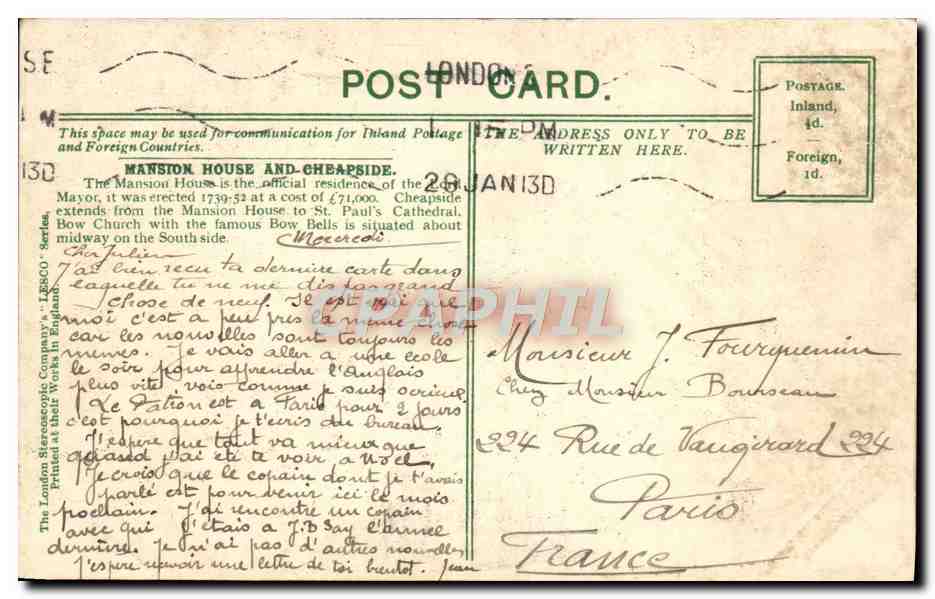 SE
1 PM
13D
LONDON
1 15 PM
29 JAN 13D
POST CARD.
POSTAGE.
Inland,
½d.
Foreign,
1d.
This space may be used for communication for Inland Postage
and Foreign Countries.
THE ADDRESS ONLY TO BE
WRITTEN HERE.
MANSION HOUSE AND CHEAPSIDE.
The Mansion House is the official residence of the Lord
Mayor, it was erected 1739-52 at a cost of £71,000. Cheapside
extends from the Mansion House to St. Paul's Cathedral.
Bow Church with the famous Bow Bells is situated about
midway on the South side.
Mercredi
Cher Julien
J'ai bien recu ta derniere carte dans
laquelle tu ne me dis pas grand
chose de neuf. Il est vrai que
moi c'est a peu pres la meme chose
car les nouvelles sont toujours les
memes. Je vais aller a une ecole
le soir pour apprendre l'anglais
plus vite, vois comme je suis serieux
Le Patron est a Paris pour 2 jours
c'est pourquoi je t'ecris du bureau.
J'espere que tout va mieux que
quand j'ai ete te voir a Noël.
Je crois que le copain dont je t'avais
parlé est pour venir ici le mois
prochain. J'ai rencontre un copain
avec qui j'etais a J.B Say l'annee
derniere. Je n'ai pas d'autres nouvelles
J'espere recevoir une lettre de toi bientot. Jean
Monsieur J. Fourquemin
Chez Monsieur Bourseau
224 Rue de Vaugirard 224
Paris
France
The London Stereoscopic Company's "LESCO" Series.
Printed at their Works in England.
CPAPHIL